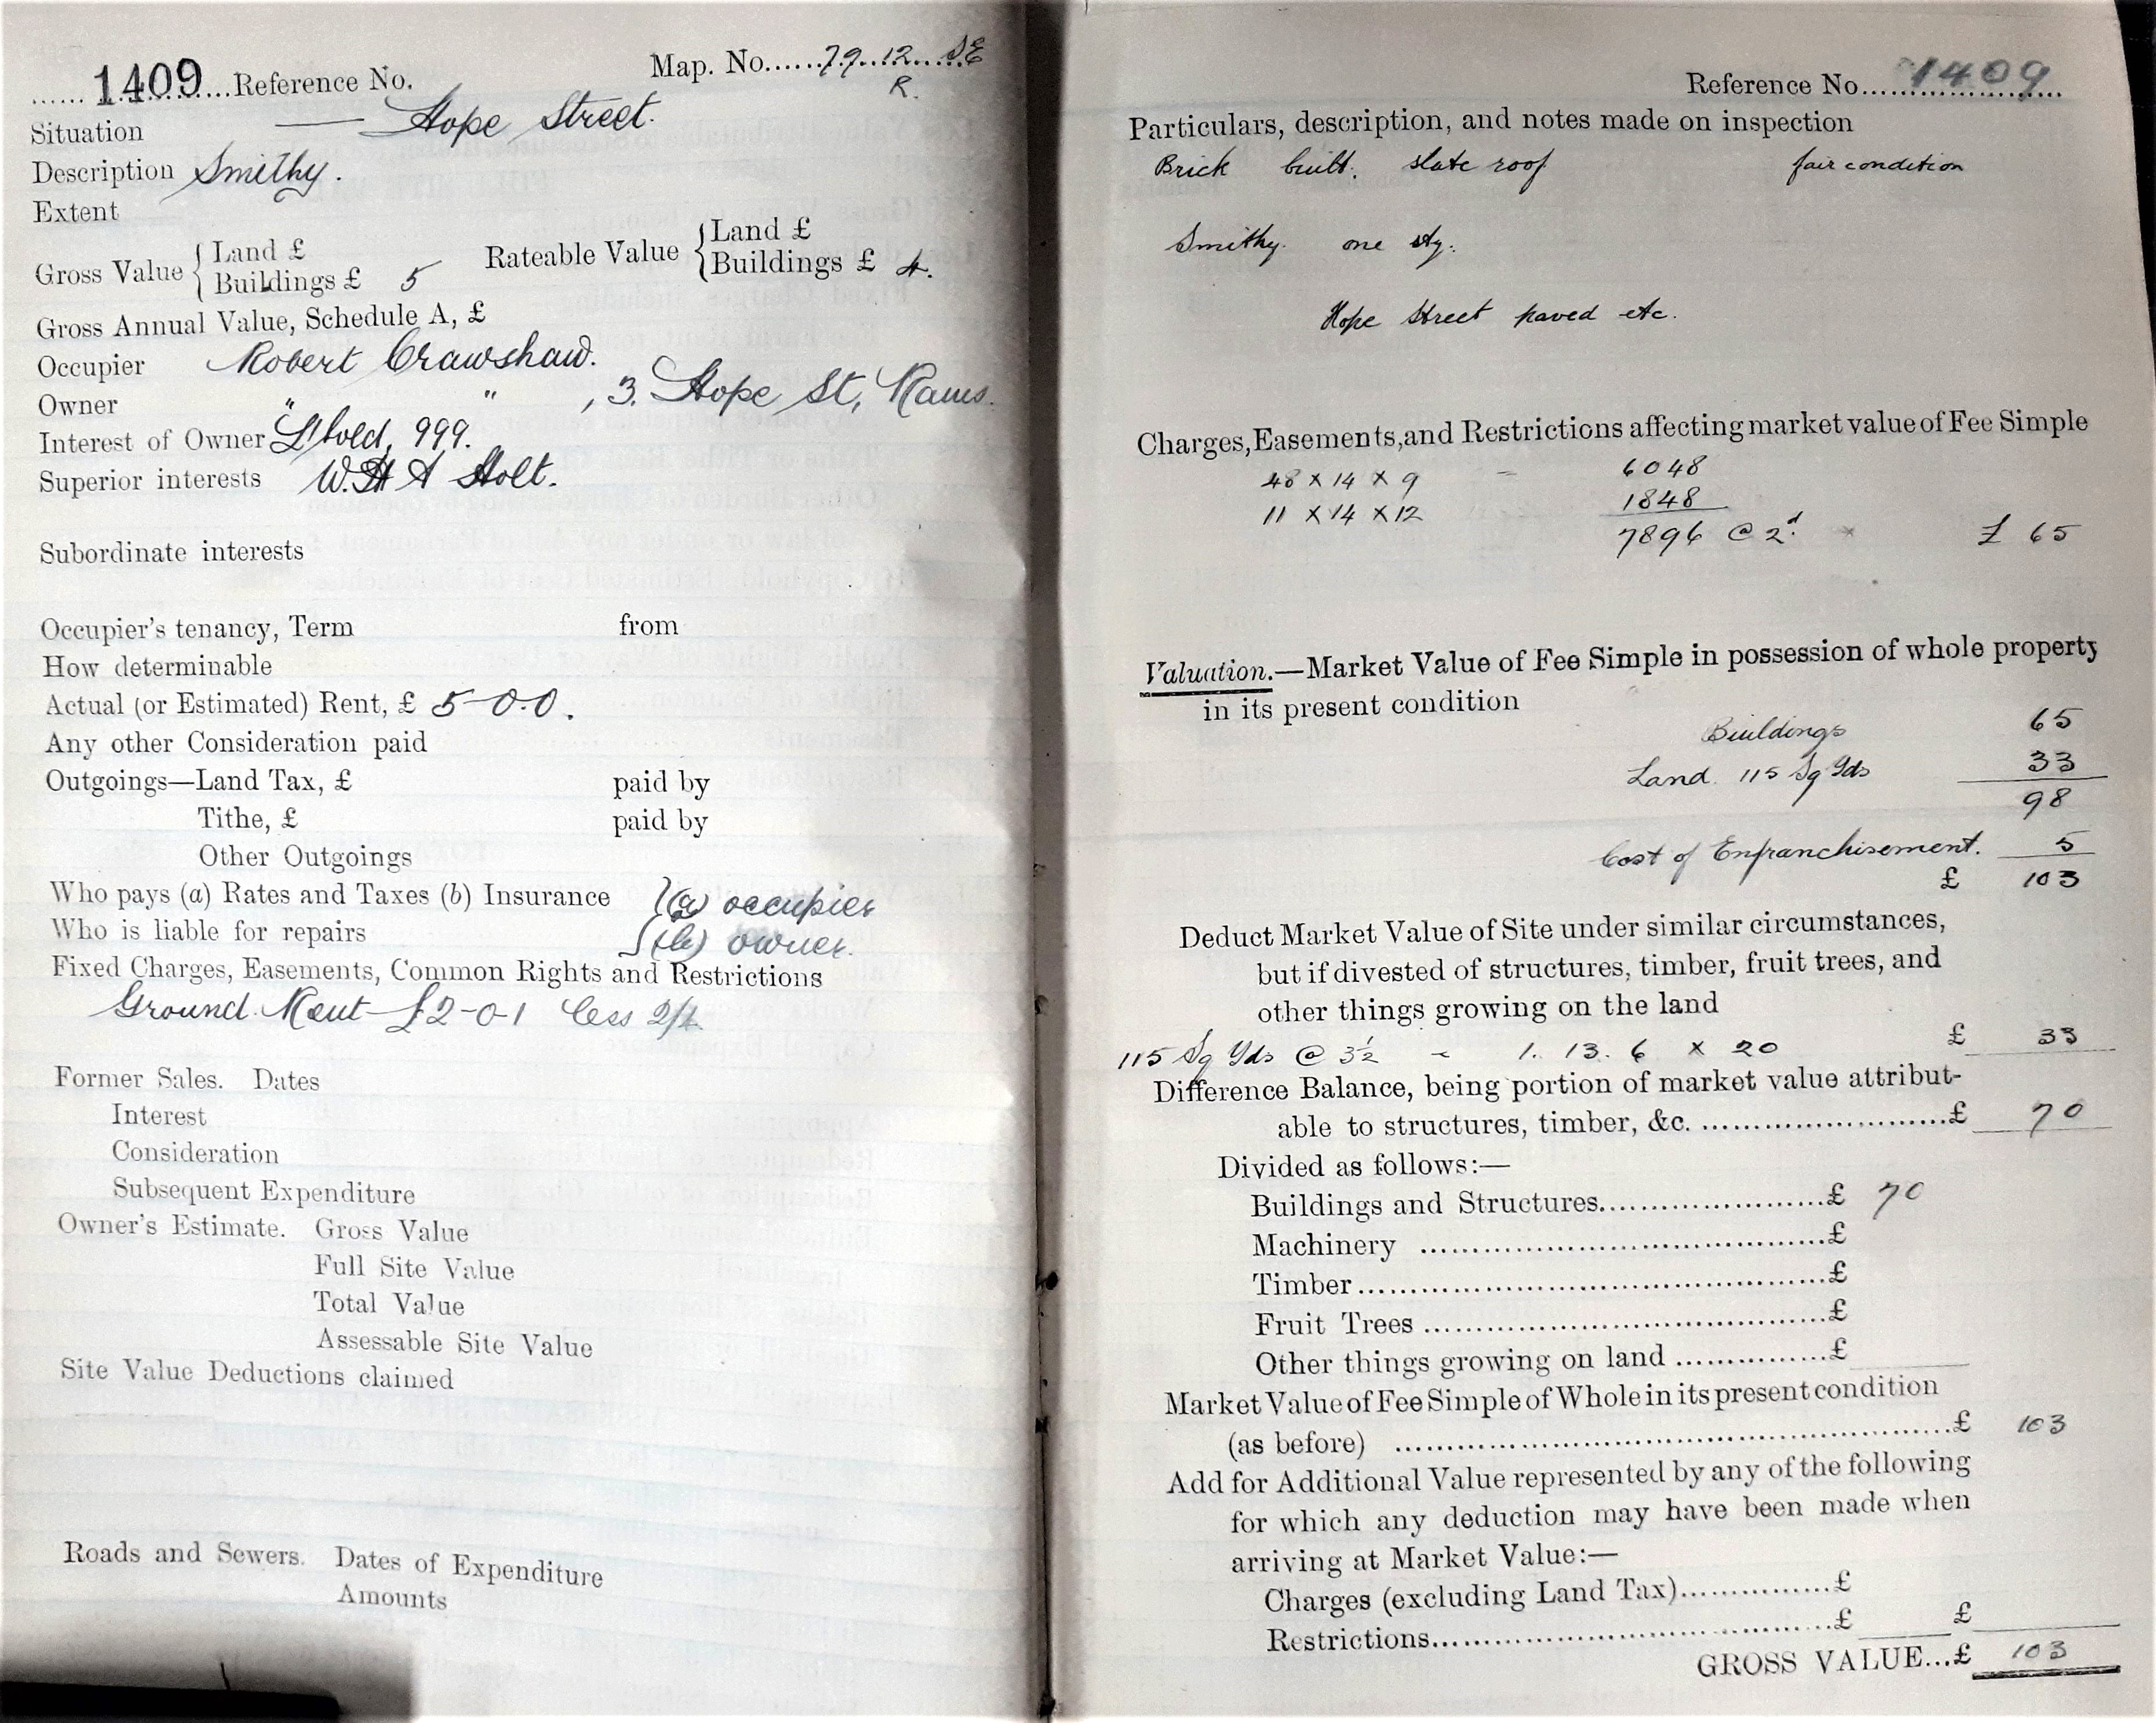 1409 Reference No. Map. No. 79.12. SE
R.
Situation Hope Street.
Description Smithy.
Extent
Gross Value { Land £
Buildings £ 5
Rateable Value { Land £
Buildings £ 4.
Gross Annual Value, Schedule A, £
Occupier Robert Crawshaw.
Owner " " , 3. Hope St, Rams.
Interest of Owner L'hold, 999.
Superior interests W.H A Holt.
Subordinate interests
Occupier's tenancy, Term from
How determinable
Actual (or Estimated) Rent, £ 5-0-0.
Any other Consideration paid
Outgoings—Land Tax, £ paid by
Tithe, £ paid by
Other Outgoings
Who pays (a) Rates and Taxes (b) Insurance } (a) occupier
Who is liable for repairs } (b) owner.
Fixed Charges, Easements, Common Rights and Restrictions
Ground Rent £2-0-1 less 2/4
Former Sales. Dates
Interest
Consideration
Subsequent Expenditure
Owner's Estimate. Gross Value
Full Site Value
Total Value
Assessable Site Value
Site Value Deductions claimed
Roads and Sewers. Dates of Expenditure
Amounts
Reference No. 1409
Particulars, description, and notes made on inspection
Brick built. slate roof fair condition
Smithy. one sty.
Hope Street paved etc.
Charges, Easements, and Restrictions affecting market value of Fee Simple
48 x 14 x 9 - 6048
11 x 14 x 12 1848
7896 @ 2d. £ 65
Valuation.—Market Value of Fee Simple in possession of whole property
in its present condition
Buildings 65
Land. 115 Sq Yds 33
98
Cost of Enfranchisement. 5
£ 103
Deduct Market Value of Site under similar circumstances,
but if divested of structures, timber, fruit trees, and
other things growing on the land
115 Sq Yds @ 3½ - 1. 13. 6 x 20 £ 33
Difference Balance, being portion of market value attribut-
able to structures, timber, &c. £ 70
Divided as follows:—
Buildings and Structures £ 70
Machinery £
Timber £
Fruit Trees £
Other things growing on land £
Market Value of Fee Simple of Whole in its present condition
(as before) £ 103
Add for Additional Value represented by any of the following
for which any deduction may have been made when
arriving at Market Value:—
Charges (excluding Land Tax) £
Restrictions £ £
GROSS VALUE...£ 103